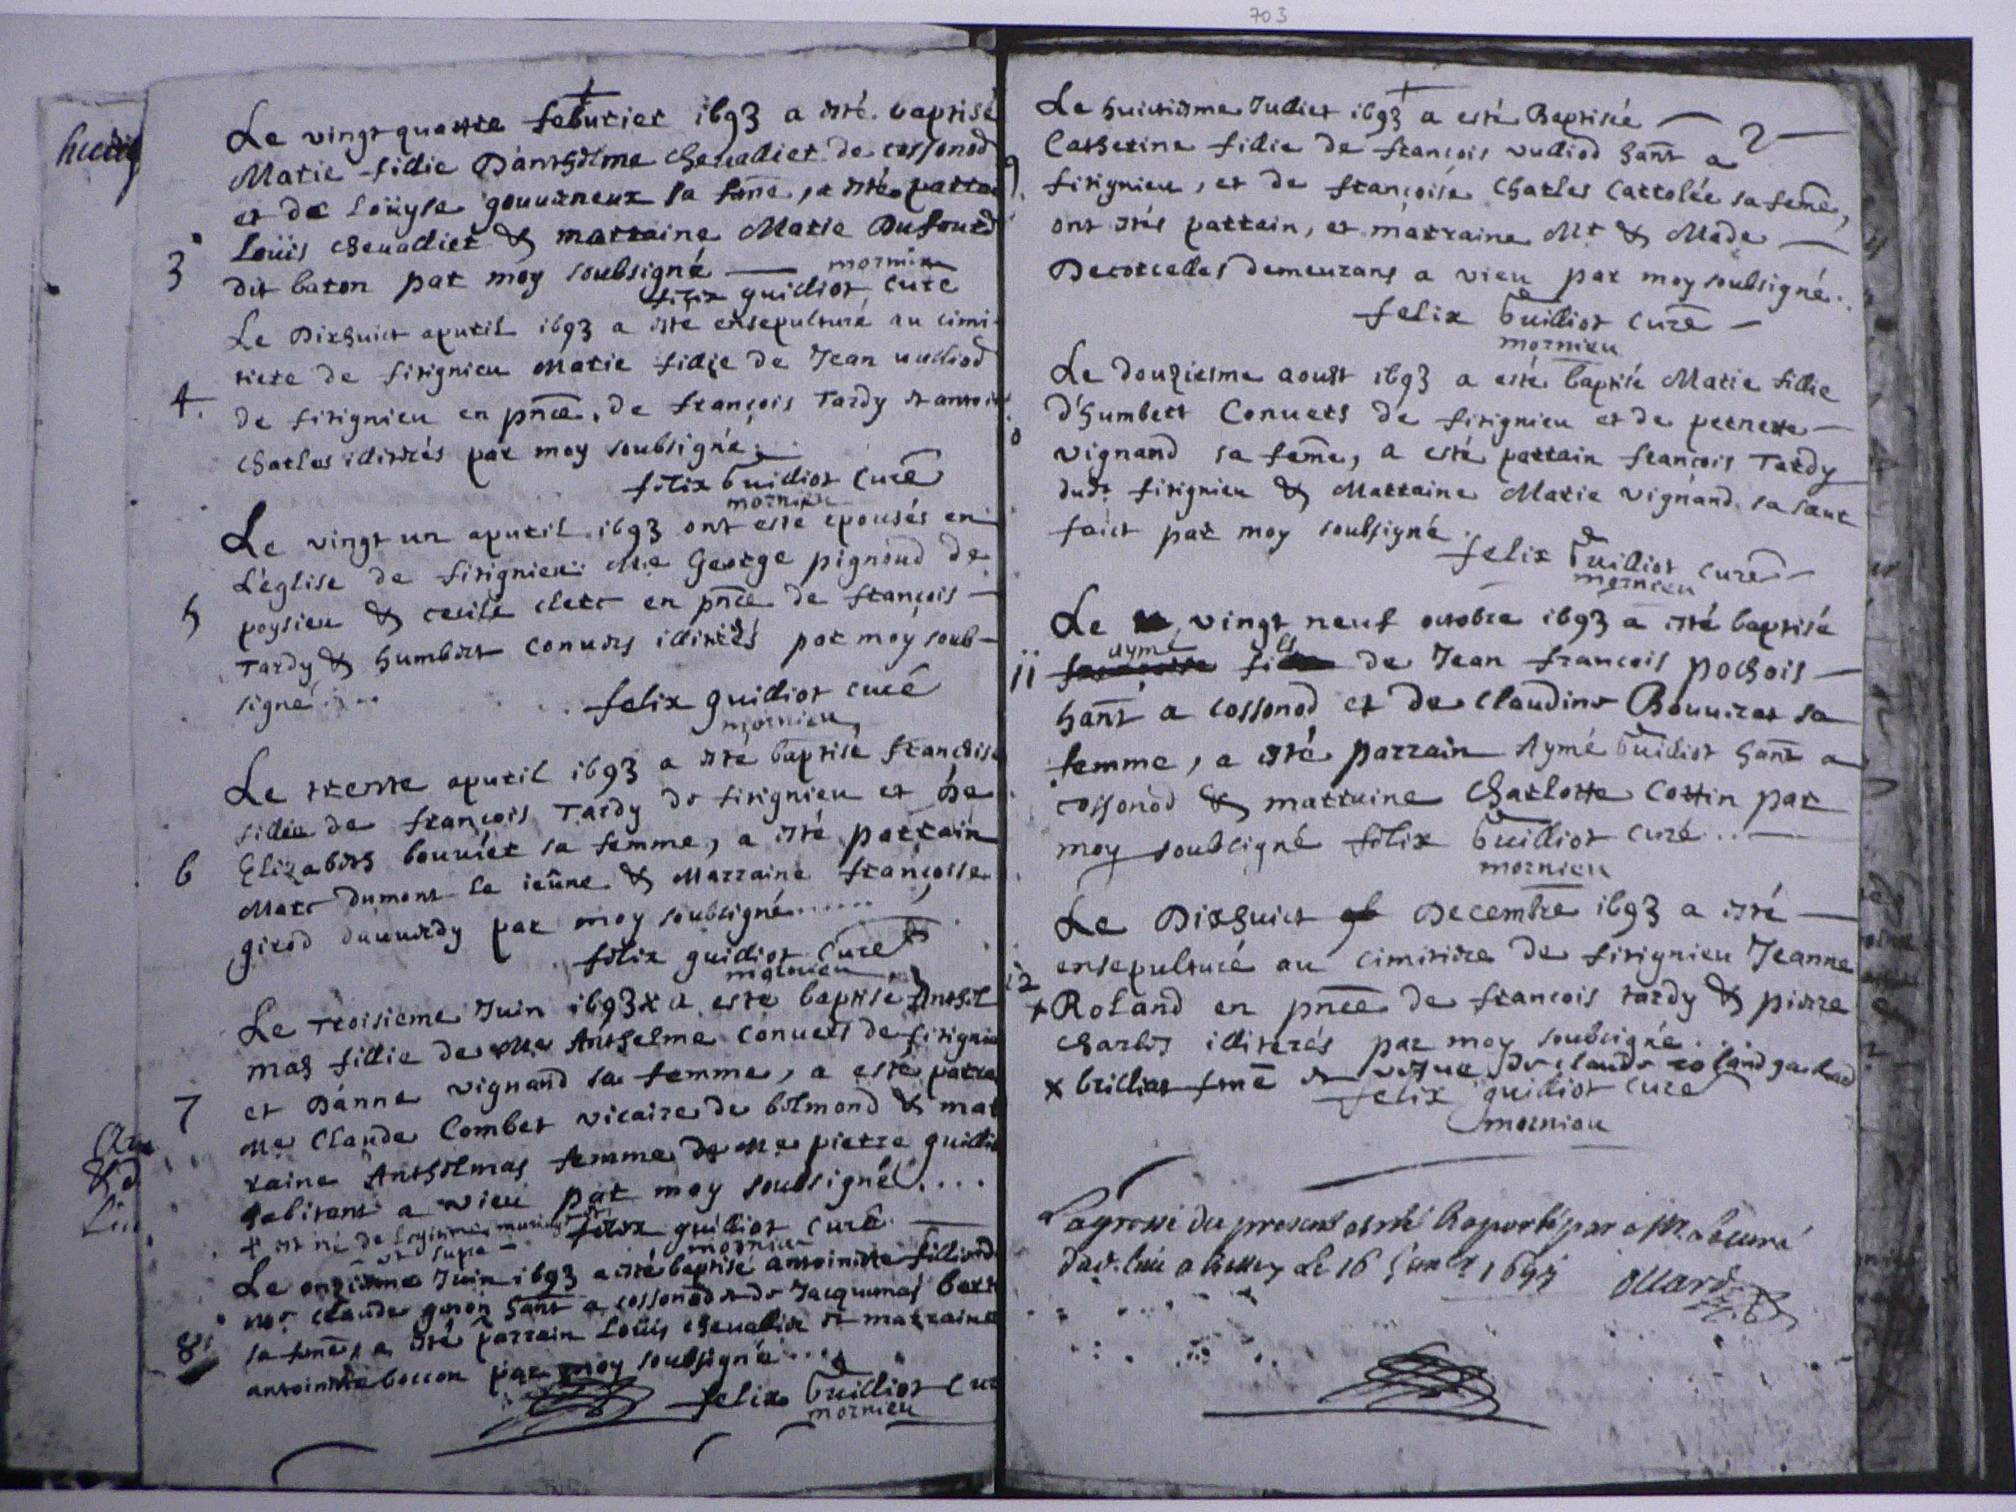 703
Le vingt quattre feburier 1693 a esté baptisé
Matie fillie D'anthelme chevallier de cossonod
et de Loüyse gouverneux sa fem̄e, a esté parra
Loüis chevallier & marraine Marie Dufour
3 dit baton par moy soubsigné
felix guilliot curé
mornieu
Le Dixhuict apvril 1693 a esté ensepulturé au cimi
tiere de fitignieu Marie fillie de Jean vulliod
4. de fitignieu en pn̄ce, de françois Tardy et antoi
Charles illitérés par moy soubsigné
felix Guilliot Curé
mornieu
Le vingt un apvril 1693 ont esté epousés en
L'église de fitignieu Me George pignoud de
5 poysieu & cecile clerc en pn̄ce de françois
Tardy & humbert Convers illitérés par moy soub-
signé
felix guilliot curé
mornieu
Le trente apvril 1693 a esté baptisé françoise
fillie de françois Tardy de fitignieu et de
6 Elizabeth bouvier sa femme, a esté parrain
Marc dumont le jeûne & Marraine françoise
girod par moy soubsigné
felix guilliot Curé
mornieu
Le Troisieme Juin 1693 x a esté baptisé Anthel
mas fillie de Me Anthelme Convers de fitignie
7 et D'anne vignand sa femme, a esté parra
Me Claude Combet vicaire de belmond & mar
raine Anthelmas femme de Me pierre guilli
habitant a vieu par moy soubsigné
felix guilliot curé
mornieu
Le onzieme Juin 1693 a esté baptisé antoinette fillie de
Mr Claude gonon han̄t a cossonod et de Jacquemas
8 sa fem̄e, a esté parrain Loüis chevallier et marraine
antoinette boccon par moy soubsigné
felix Guilliot Cur
mornieu
Le huictiesme Julliet 1693 a esté Baptisée
Catherine fillie de françois vulliod han̄t a
9. fitignieu, et de françoise Charles Cattolée sa fem̄e,
ont estés parrain, et marraine Mr & Made
Decorcelles demeurans a vieu par moy soubsigné
felix Guilliot Curé
mornieu
Le douziesme aoust 1693 a esté baptisé Marie fillie
d'humbert Convers de fitignieu et de pernette
vignand sa fem̄e, a esté parrain françois Tardy
dudt fitignieu & Marraine Marie vignand sa sœur
faict par moy soubsigné
felix Guilliot curé
mornieu
Le vingt neuf octobre 1693 a esté baptisé
11 aymé fils de Jean francois pochois
han̄t a cossonod et de Claudine Bouvier sa
femme, a esté parrain Aymé Guilliot han̄t a
cossonod & marraine Charlotte Cottin par
moy soubsigné felix Guilliot curé
mornieu
Le Dixhuict Decembre 1693 a esté
ensepulturé au cimitiere de fitignieu Jeanne
12 + Roland en pn̄ce de francois tardy & pierre
charles illitérés par moy soubsigné
x brilliat fem̄e et vefve de claude roland
felix guilliot Curé
mornieu
La grosse du present a esté Raporté par Mr le curé